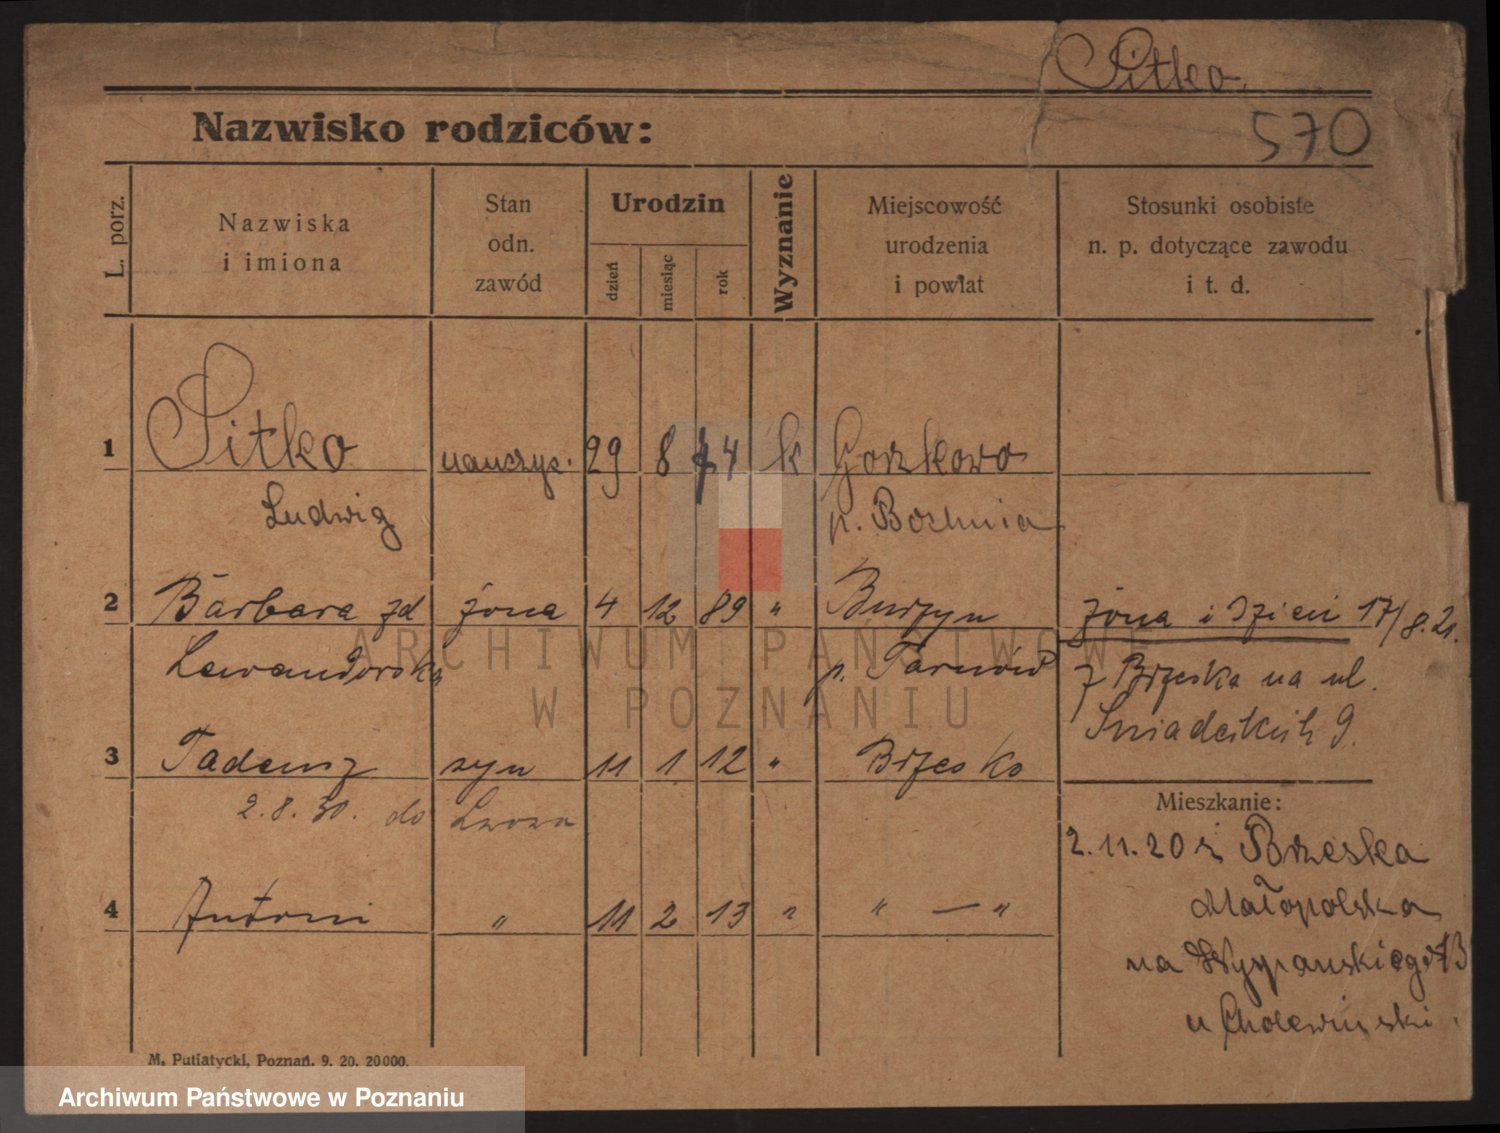 Sitko
570
Nazwisko rodziców:
L. porz.
Nazwiska
i imiona
Stan
odn.
zawód
Urodzin
dzień
miesiąc
rok
Wyznanie
Miejscowość
urodzenia
i powiat
Stosunki osobiste
n. p. dotyczące zawodu
i t. d.
1 Sitko nauczyc. 29 8 74 k Gorzkowo
Ludwig p. Bochnia
2 Barbara zd żona 4 12 89 " Burzyn żona i dzieci 17/8.21.
Lewandowska p. Tarnów z Brzeska na ul.
Śniadeckich 9.
3 Tadeusz syn 11 1 12 " Brzesko
2.8.30. do Lwowa
Mieszkanie:
2.11.20 z Brzeska
4 Antoni " 11 2 13 " " — "
Małopolska
na Wyspiańskiego 13
u Cholewiński.
M. Putiatycki, Poznań. 9. 20. 20000.
ARCHIWUM PAŃSTWOWE
W POZNANIU
Archiwum Państwowe w Poznaniu